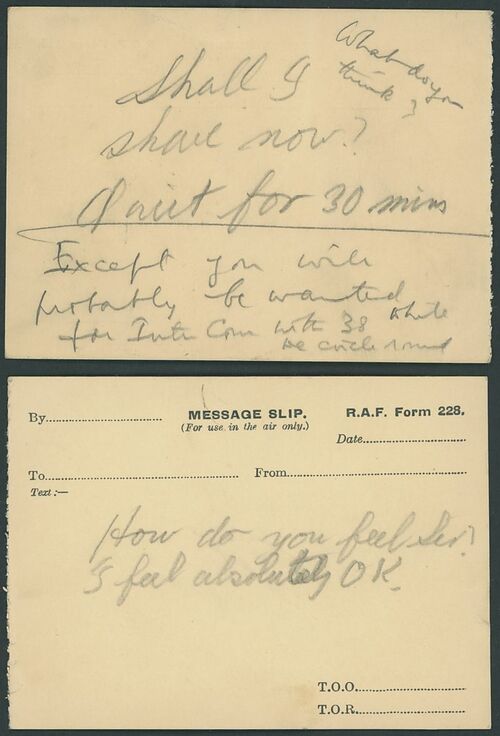 Shall I
shave now?
What do you
think?
Quiet for 30 mins
Except you will
probably be wanted
for Inter Com with 38 while
we circle round
By
MESSAGE SLIP.
(For use in the air only.)
R.A.F. Form 228.
Date
To
From
Text :—
How do you feel Sir?
I feel absolutely OK.
T.O.O.
T.O.R.